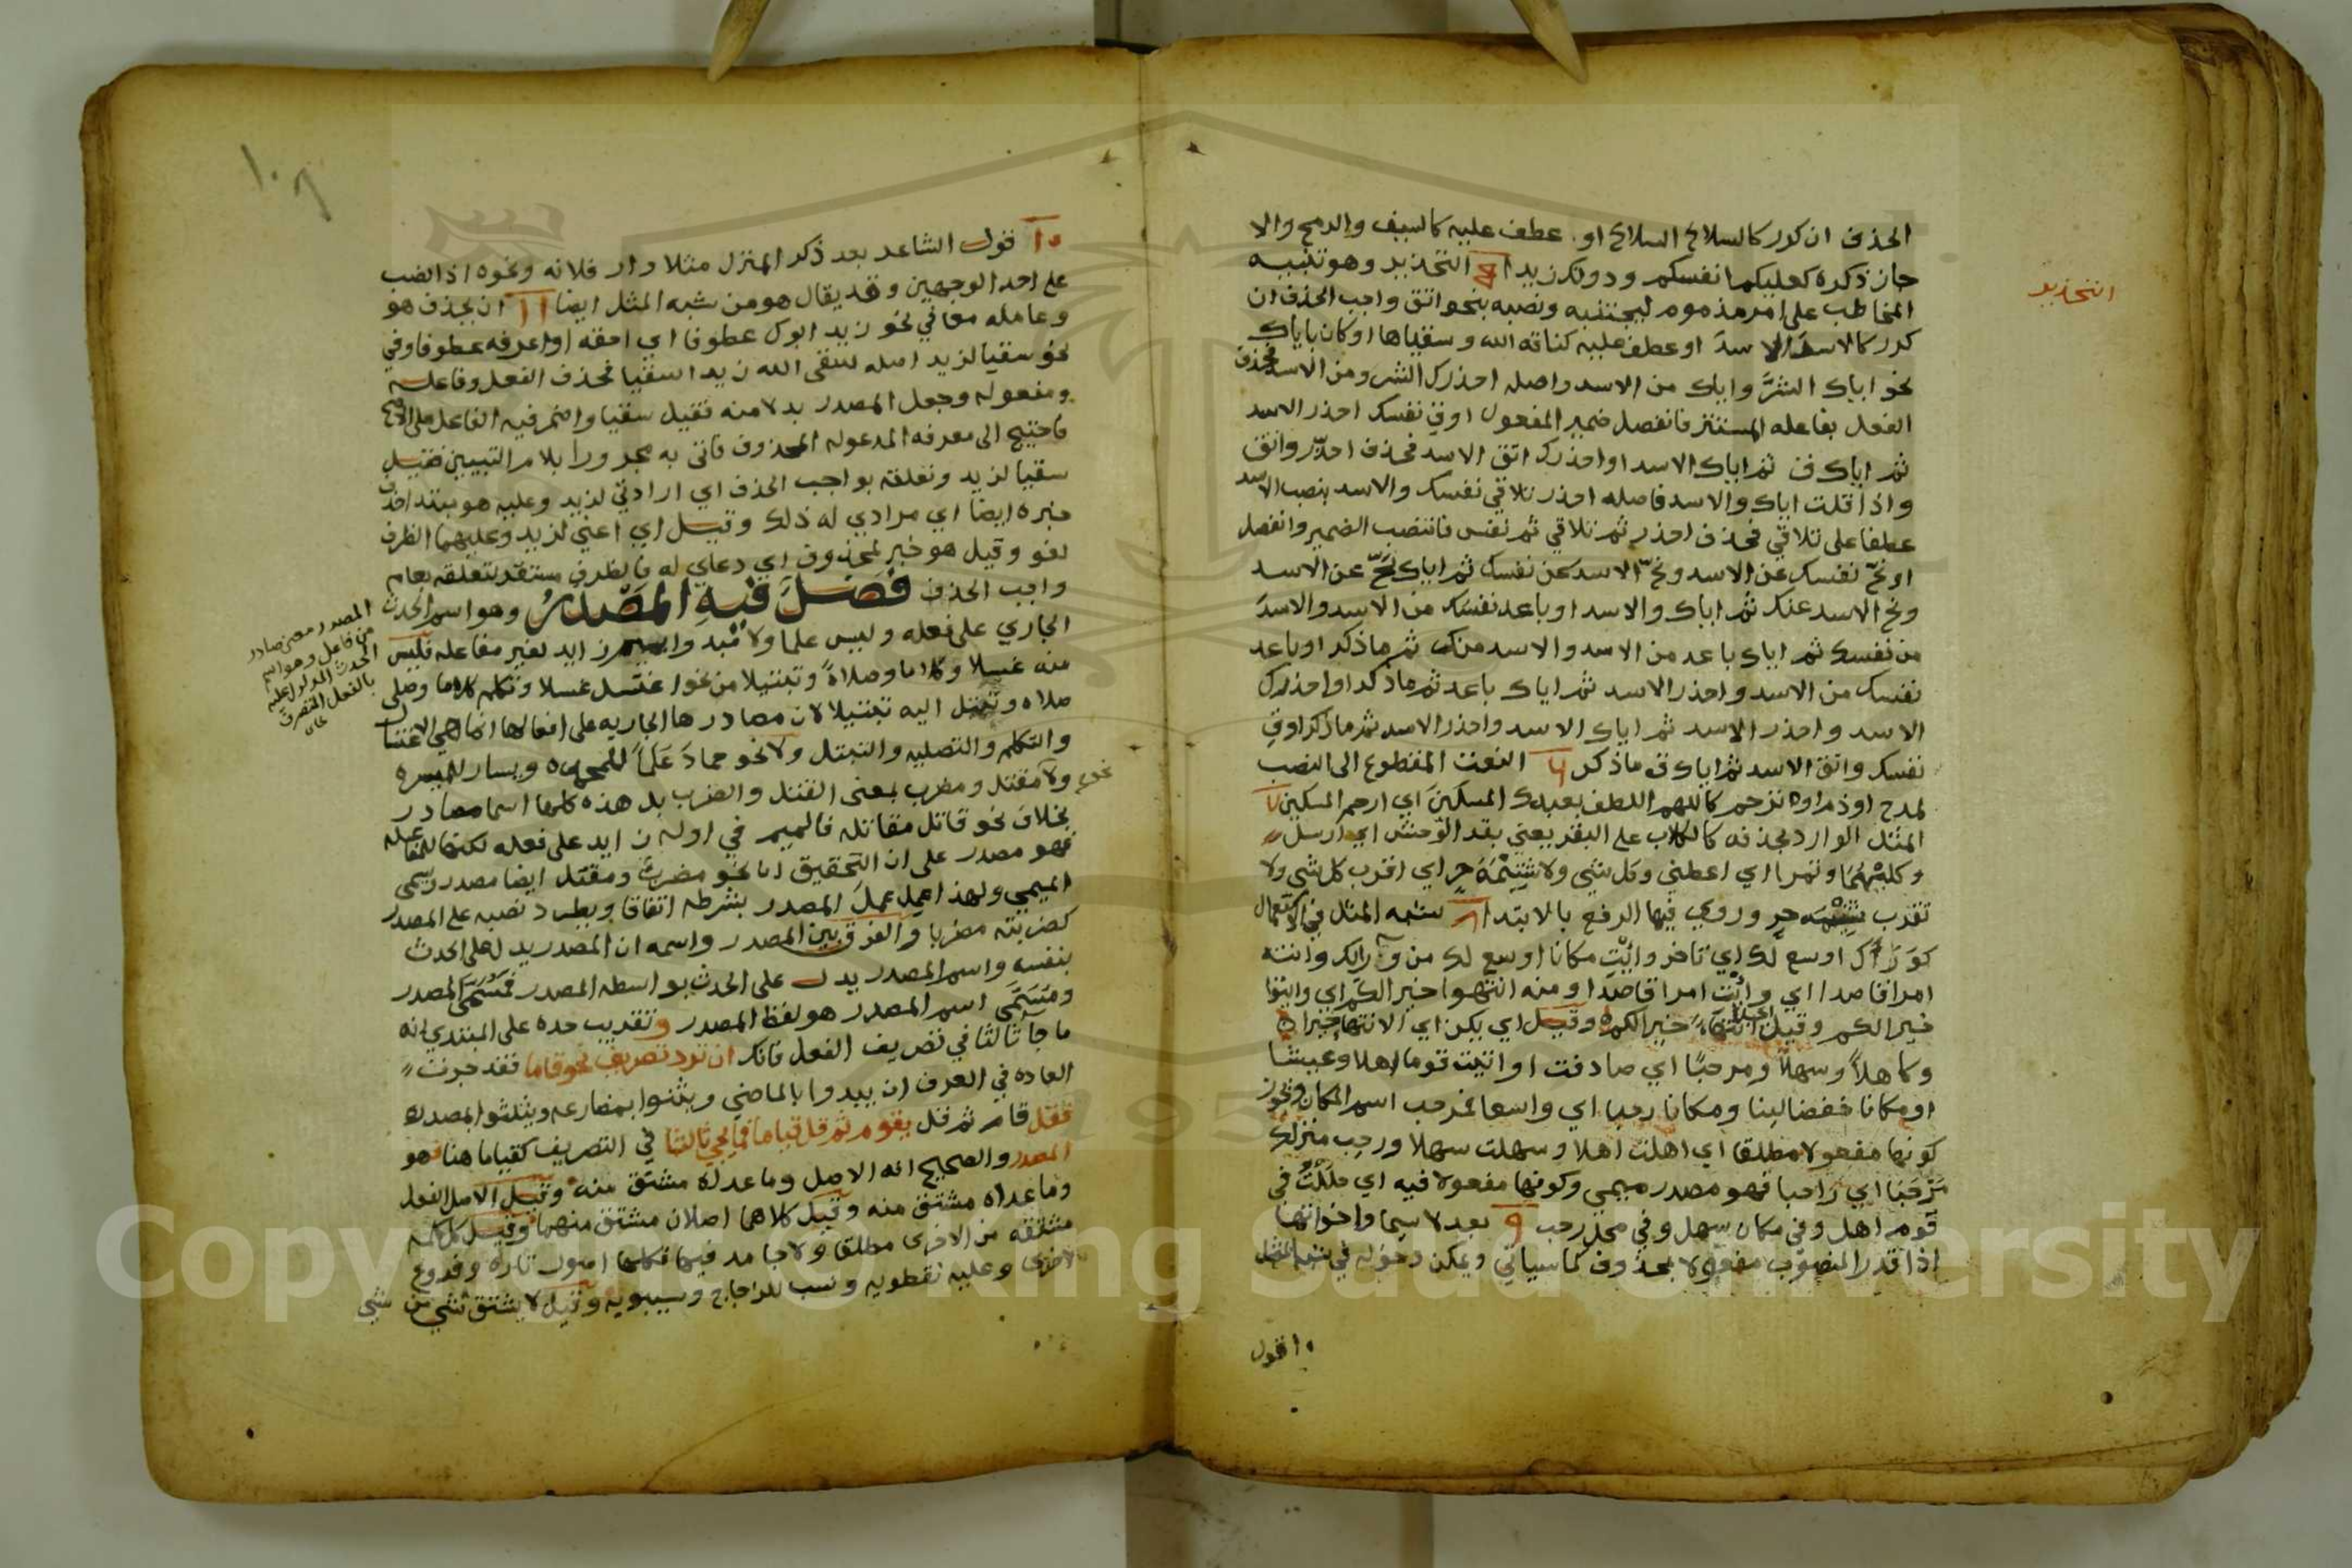 الحذف ان كرر كالسلاح السلاح او عطف عليه كالسيف والرمح والا
جاز ذكره كعليكم انفسكم ودونك زيدا ٥ التحذير وهو تنبيه
التحذير
المخاطب على امر مذموم ليجتنبه ونصبه بنحو اتق واجب الحذف ان
كرر كالاسد الاسد او عطف عليه كناقة الله وسقياها او كان باياك
نحو اياك الشر واياك من الاسد واصله احذرك الشر ومن الاسد فحذف
الفعل بفاعله المستتر فانفصل ضمير المفعول اوقي نفسك احذر الاسد
ثم اياك ق ثم اياك الاسد او احذرك اتق الاسد فحذف احذر واتق
واذا قلت اياك والاسد فاصله احذر تلاقي نفسك والاسد بنصب الاسد
عطفا على تلاقي فحذف احذر ثم تلاقي ثم نفس فانتصب الضمير وانفصل
او نح نفسك عن الاسد ونح الاسد عن نفسك ثم اياك نح عن الاسد
ونح الاسد عنك ثم اياك والاسد او باعد نفسك من الاسد والاسد
من نفسك ثم اياك باعد من الاسد والاسد منك ثم ما ذكر او باعد
نفسك من الاسد واحذر الاسد ثم اياك باعد ثم ما ذكر او احذرك
الاسد واحذر الاسد ثم اياك الاسد واحذر الاسد ثم ما ذكر اوقي
نفسك واتق الاسد ثم اياك ق ما ذكر ٦ النعت المقطوع الى النصب
لمدح او ذم او ترحم كاللهم الطف بعبدك المسكين اي ارحم المسكين ٧
المثل الوارد بحذفه كالكلاب على البقر يعني بقر الوحش اي ارسل
وكليهما وتمرا اي اعطني وكل شي ولا شتيمة حر اي اقرب كل شي ولا
تقرب شتيمة حر وروي فيها الرفع بالابتدا ٨ شبه المثل في الاستعمال
كوراك اوسع لك اي تاخر وائت مكانا اوسع لك من ورائك وانته
امرا قاصدا اي وائت امرا قاصدا ومنه انتهوا خيرا لكم اي وايتوا
خيرا لكم وقيل انتهاء خيرا لكم وقيل اي يكن اي الانتهاء خيرا
وكاهلا وسهلا ومرحبا اي صادفت او اتيت قوما اهلا وعيشا
او مكانا خفضا لينا ومكانا رحبا اي واسعا فمرحب اسم المكان ونحوز
كونها مفعولا مطلقا اي اهلت اهلا وسهلت سهلا ورحب منزلك
مرحبا اي راحبا فهو مصدر ميمي وكونها مفعولا فيه اي حللت في
قوم اهل وفي مكان سهل وفي محل رحب ٩ بعد لا سيما واخواتها
اذا قدر المنصوب مفعولا لمحذوف كما سياتي ويمكن دخوله في شبه المثل
١٠ قول
١٠ قول الشاعر بعد ذكر المنزل مثلا دار فلانه ونحوه اذا نصب
على احد الوجهين وقد يقال هو من شبه المثل ايضا ١١ ان يحذف هو
وعامله معا في نحو زيد ابوك عطوفا اي احقه او اعرفه عطوفا وفي
نحو سقيا لزيد اصله سقى الله زيدا سقيا فحذف الفعل وفاعله
ومفعوله وجعل المصدر بدلا منه فقيل سقيا واضمر فيه الفاعل على الاصح
فاحتيج الى معرفه المدعو له المحذوف فاتى به مجرورا بلام التبيين فقيل
سقيا لزيد وتعلقه بواجب الحذف اي ارادتي لزيد وعليه هو مبتدا حذف
خبره ايضا اي مرادي له ذلك وقيل اي اعني لزيد وعليهما الظرف
لغو وقيل هو خبر لمحذوف اي دعاي له فالظرف مستقر لتعلقه بعام
واجب الحذف فصل فيه المصدر وهو اسم الحدث
الجاري على فعله وليس علما ولا ميد وا بميم زايد لغير مفاعله فليس
منه غسلا وكلاما وصلاة وتبتيلا من نحو اغتسل غسلا وتكلم كلاما وصلى
صلاه وتبتل اليه تبتيلا لان مصادرها الجاريه على افعالها انما هي الاغتسال
والتكلم والتصليه والتبتل ولا نحو حماد علما للمحمده ويسار للميسره
ولا مقتل ومضرب بمعنى القتل والضرب بل هذه كلها اسما مصادر
نحو
بخلاف نحو قاتل مقاتله فالميم في اوله زايد على فعله لكنها للمفاعله
فهو مصدر على ان التحقيق ان نحو مضرب ومقتل ايضا مصدر ويسمى
الميمي ولهذا اعمل عمل المصدر بشرطه اتفاقا ويطرد نصبه على المصدر
كضربته مضربا والفرق بين المصدر واسمه ان المصدر يدل على الحدث
بنفسه واسم المصدر يدل على الحدث بواسطه المصدر فمسمى المصدر
ومسمى اسم المصدر هو لفظ المصدر وتقريب حده على المبتدي انه
ما جا ثالثا في تصريف الفعل فانك ان ترد تصريف نحو قاما فقد جرت
العاده في العرف ان يبدوا بالماضي ويثنوا بمضارعه ويثلثوا بمصدره
فقل قام ثم قل يقوم ثم قل قياما فما يجي ثالثا في التصريف كقياما هنا هو
المصدر والصحيح انه الاصل وما عداه مشتق منه وقيل الاصل الفعل
وما عداه مشتق منه وقيل كلاهما اصلان مشتق منهما وقيل كل كلمه
مشتقه من الاخرى مطلقا ولا جامد فيها فكلها اصول تاره وفروع
اخرى وعليه نفطويه ونسب للزجاج وسيبويه وقيل لا يشتق شي من شي
المصدر معنى صادر
من فاعل وهو اسم
الحدث المدلول عليه
بالفعل المتصرف